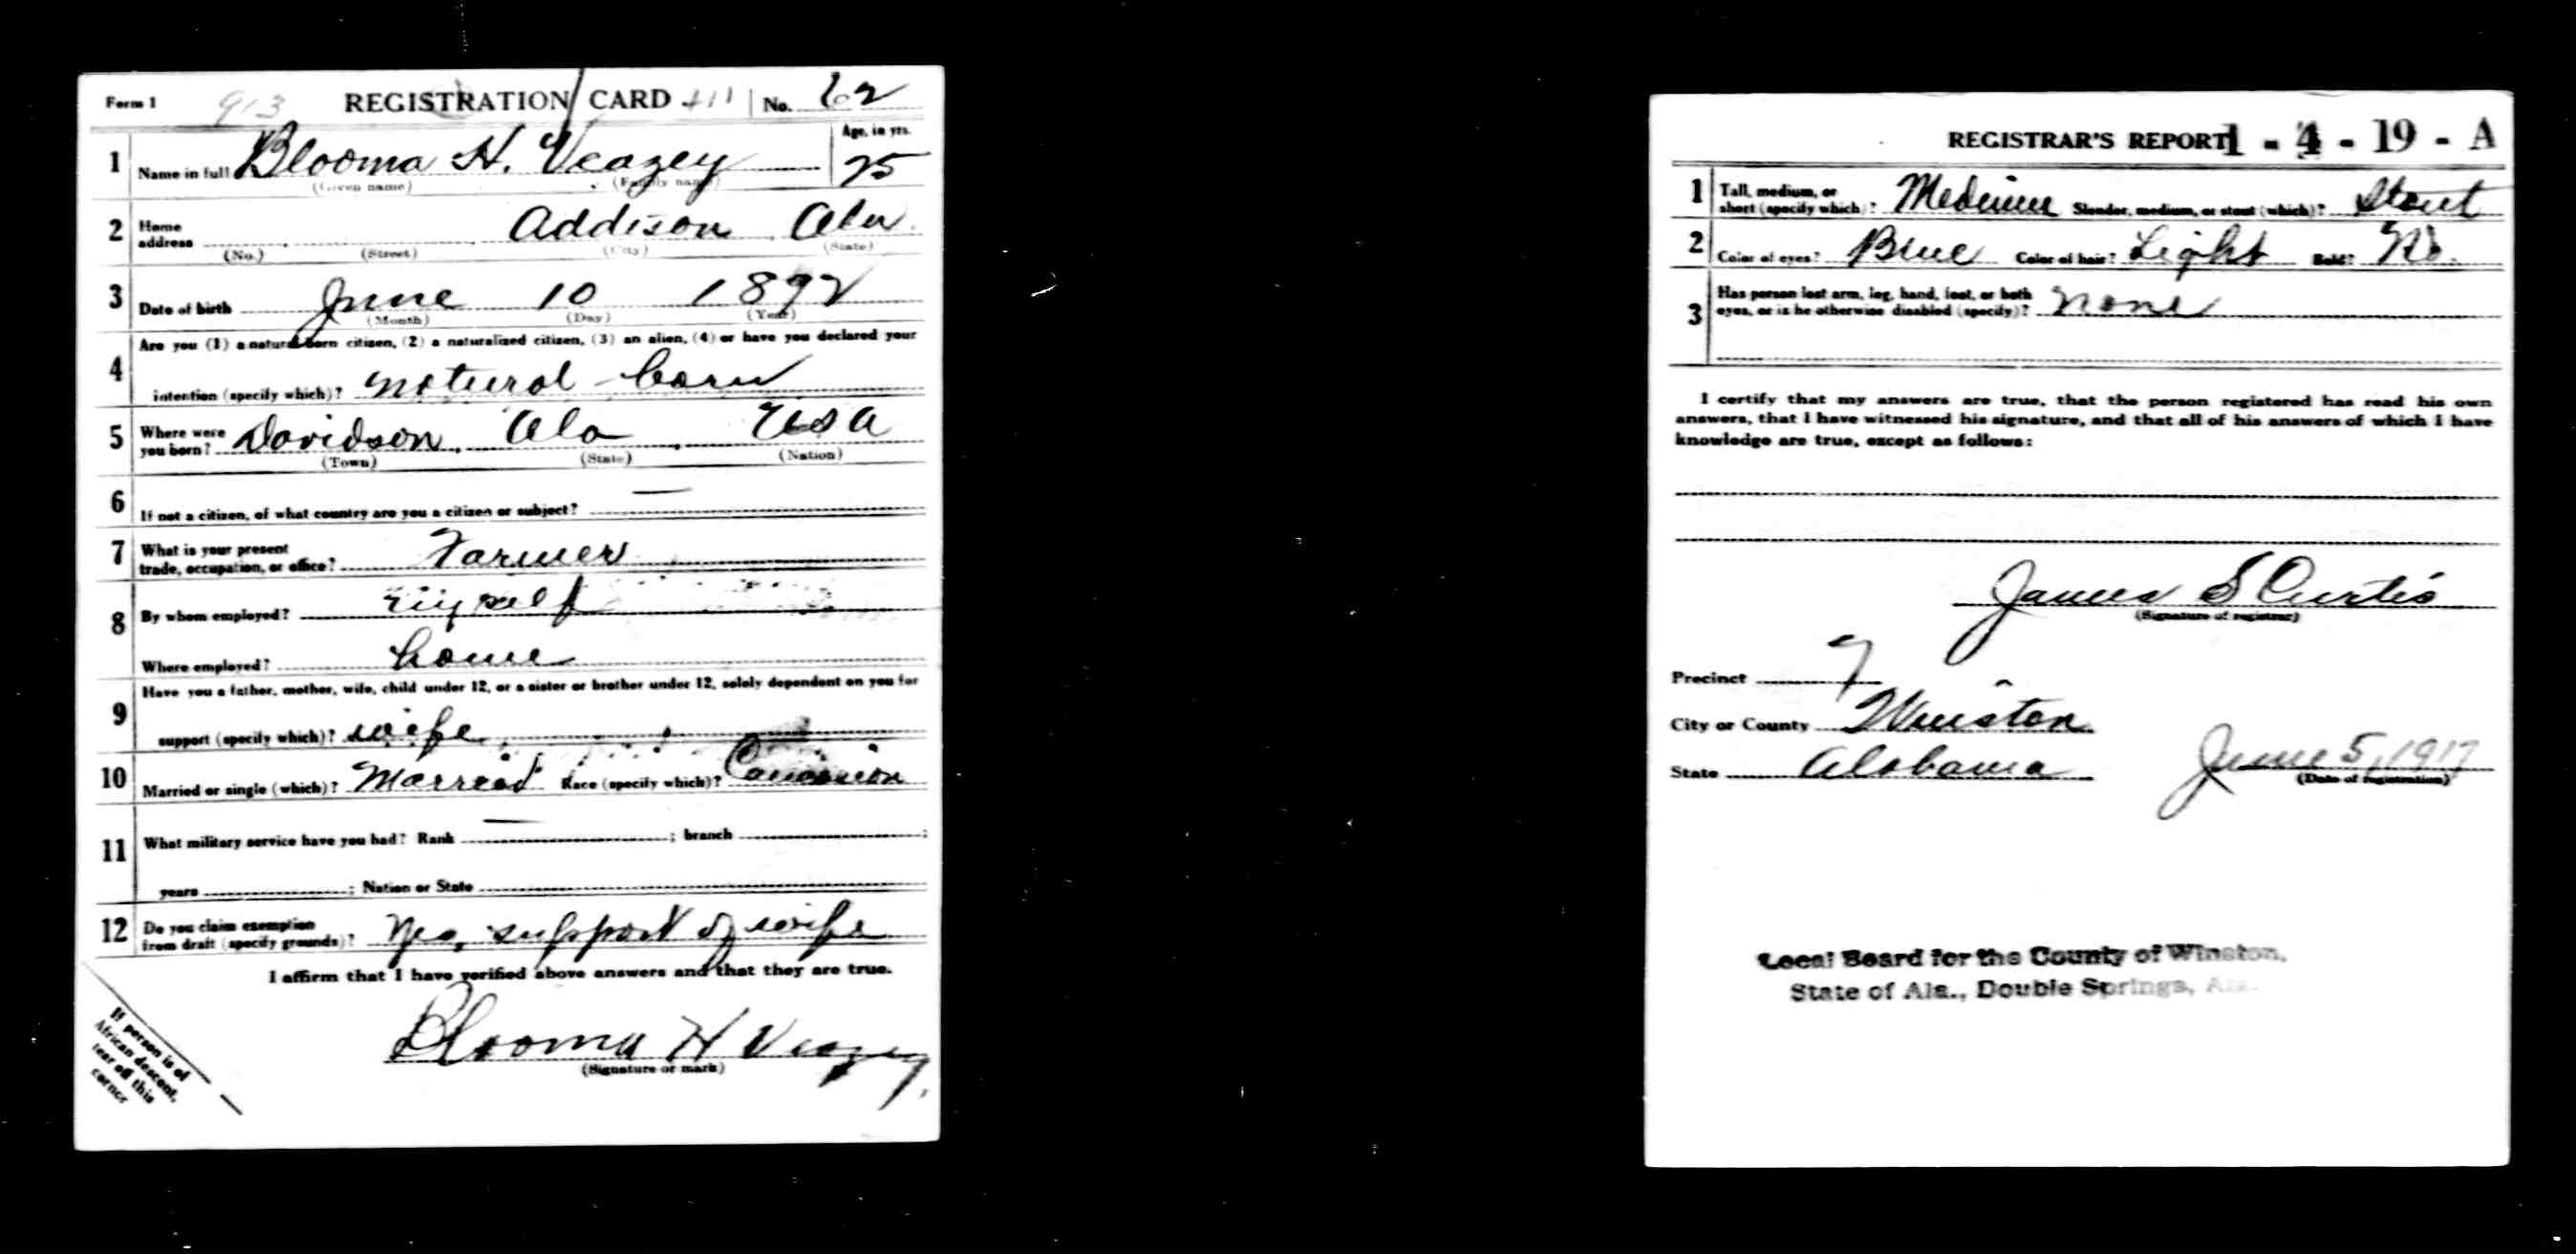 Form 1 913 REGISTRATION CARD 411 No. 62
1 Name in full Blooma H. Veazey Age, in yrs. 25
(Given name) (Family name)
2 Home address Addison Ala.
(No.) (Street) (City) (State)
3 Date of birth June 10 1892
(Month) (Day) (Year)
Are you (1) a natural born citizen, (2) a naturalized citizen, (3) an alien, (4) or have you declared your
4 intention (specify which)? natural-born
5 Where were you born? Davidson, Ala, USA
(Town) (State) (Nation)
6 If not a citizen, of what country are you a citizen or subject? —
7 What is your present trade, occupation, or office? Farmer
8 By whom employed? Myself
Where employed? home
Have you a father, mother, wife, child under 12, or a sister or brother under 12, solely dependent on you for
9 support (specify which)? wife
10 Married or single (which)? Married Race (specify which)? Caucasion
11 What military service have you had? Rank — ; branch ;
years ; Nation or State
12 Do you claim exemption from draft (specify grounds)? Yes, support of wife
I affirm that I have verified above answers and that they are true.
Blooma H Veazey
(Signature or mark)
If person is of
African descent,
tear off this
corner
REGISTRAR'S REPORT 1 - 4 - 19 - A
1 Tall, medium, or short (specify which)? Medium Slender, medium, or stout (which)? Stout
2 Color of eyes? Blue Color of hair? Light Bald? No.
3 Has person lost arm, leg, hand, foot, or both eyes, or is he otherwise disabled (specify)? None
I certify that my answers are true, that the person registered has read his own
answers, that I have witnessed his signature, and that all of his answers of which I have
knowledge are true, except as follows:
James S Curtis
(Signature of registrar)
Precinct 7
City or County Winston
State Alabama June 5, 1917
(Date of registration)
Local Board for the County of Winston,
State of Ala., Double Springs, Ala.